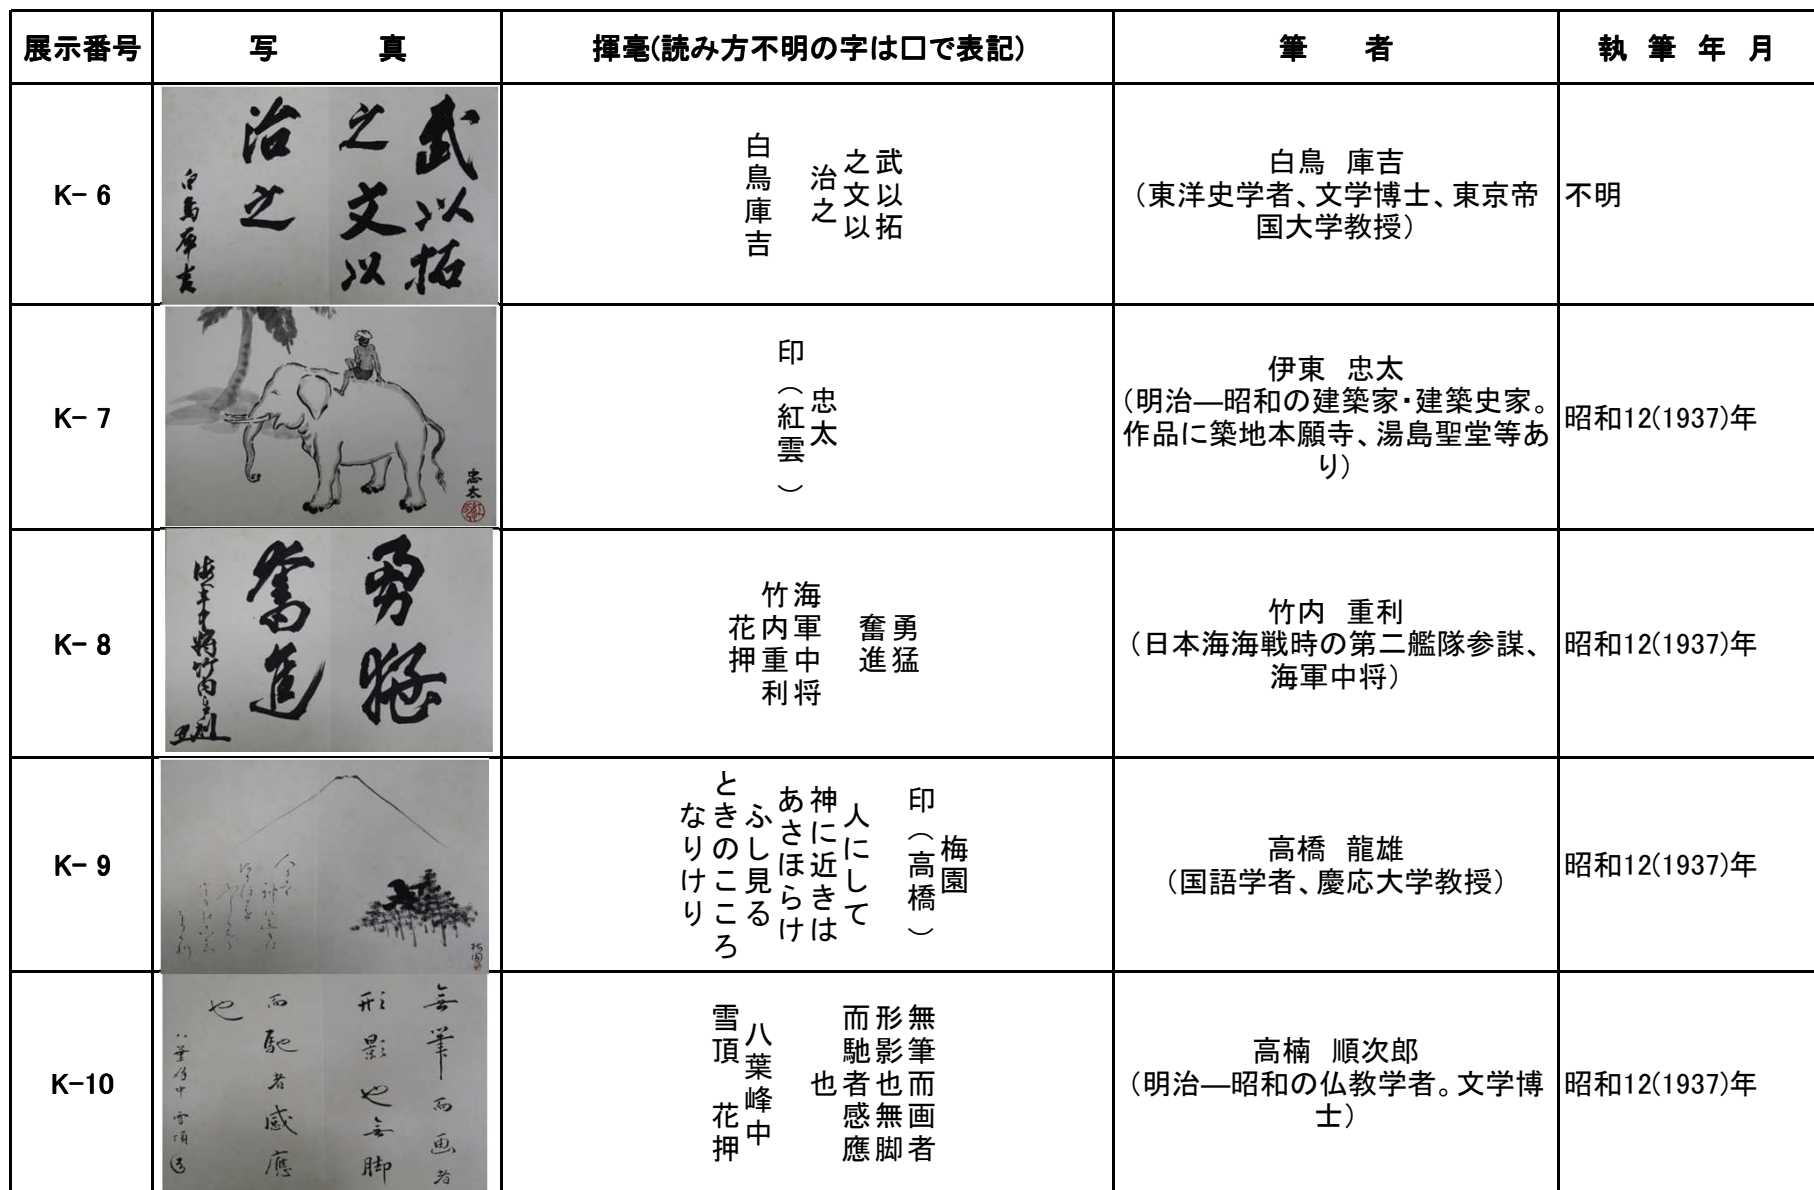 展示番号 写真 揮毫(読み方不明の字は□で表記) 筆者 執筆年月
K-6
武以拓
之文以
治之
白鳥庫吉
武以拓
之文以
治之
白鳥庫吉
白鳥 庫吉
(東洋史学者、文学博士、東京帝
国大学教授)
不明
K-7
忠太
忠太
印(紅雲)
伊東 忠太
(明治―昭和の建築家・建築史家。
作品に築地本願寺、湯島聖堂等あ
り)
昭和12(1937)年
K-8
勇猛
奮進
海軍中将竹内重利
勇猛
奮進
海軍中将
竹内重利
花押
竹内 重利
(日本海海戦時の第二艦隊参謀、
海軍中将)
昭和12(1937)年
K-9
梅園
梅園
印(高橋)
人にして
神に近きは
あさほらけ
ふし見る
ときのこころ
なりけり
高橋 龍雄
(国語学者、慶応大学教授)
昭和12(1937)年
K-10
無筆而画者
形影也無脚
而馳者感應
也
八葉峰中雪頂
無筆而画者
形影也無脚
而馳者感應
也
八葉峰中
雪頂 花押
高楠 順次郎
(明治―昭和の仏教学者。文学博
士)
昭和12(1937)年